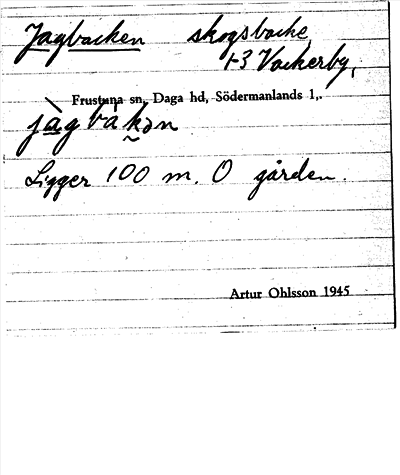 Jagbacken skogsbacke
1-3 Vackerby,
Frustuna sn, Daga hd, Södermanlands l,.
jàgbákən
Ligger 100 m. O gården.
Artur Ohlsson 1945